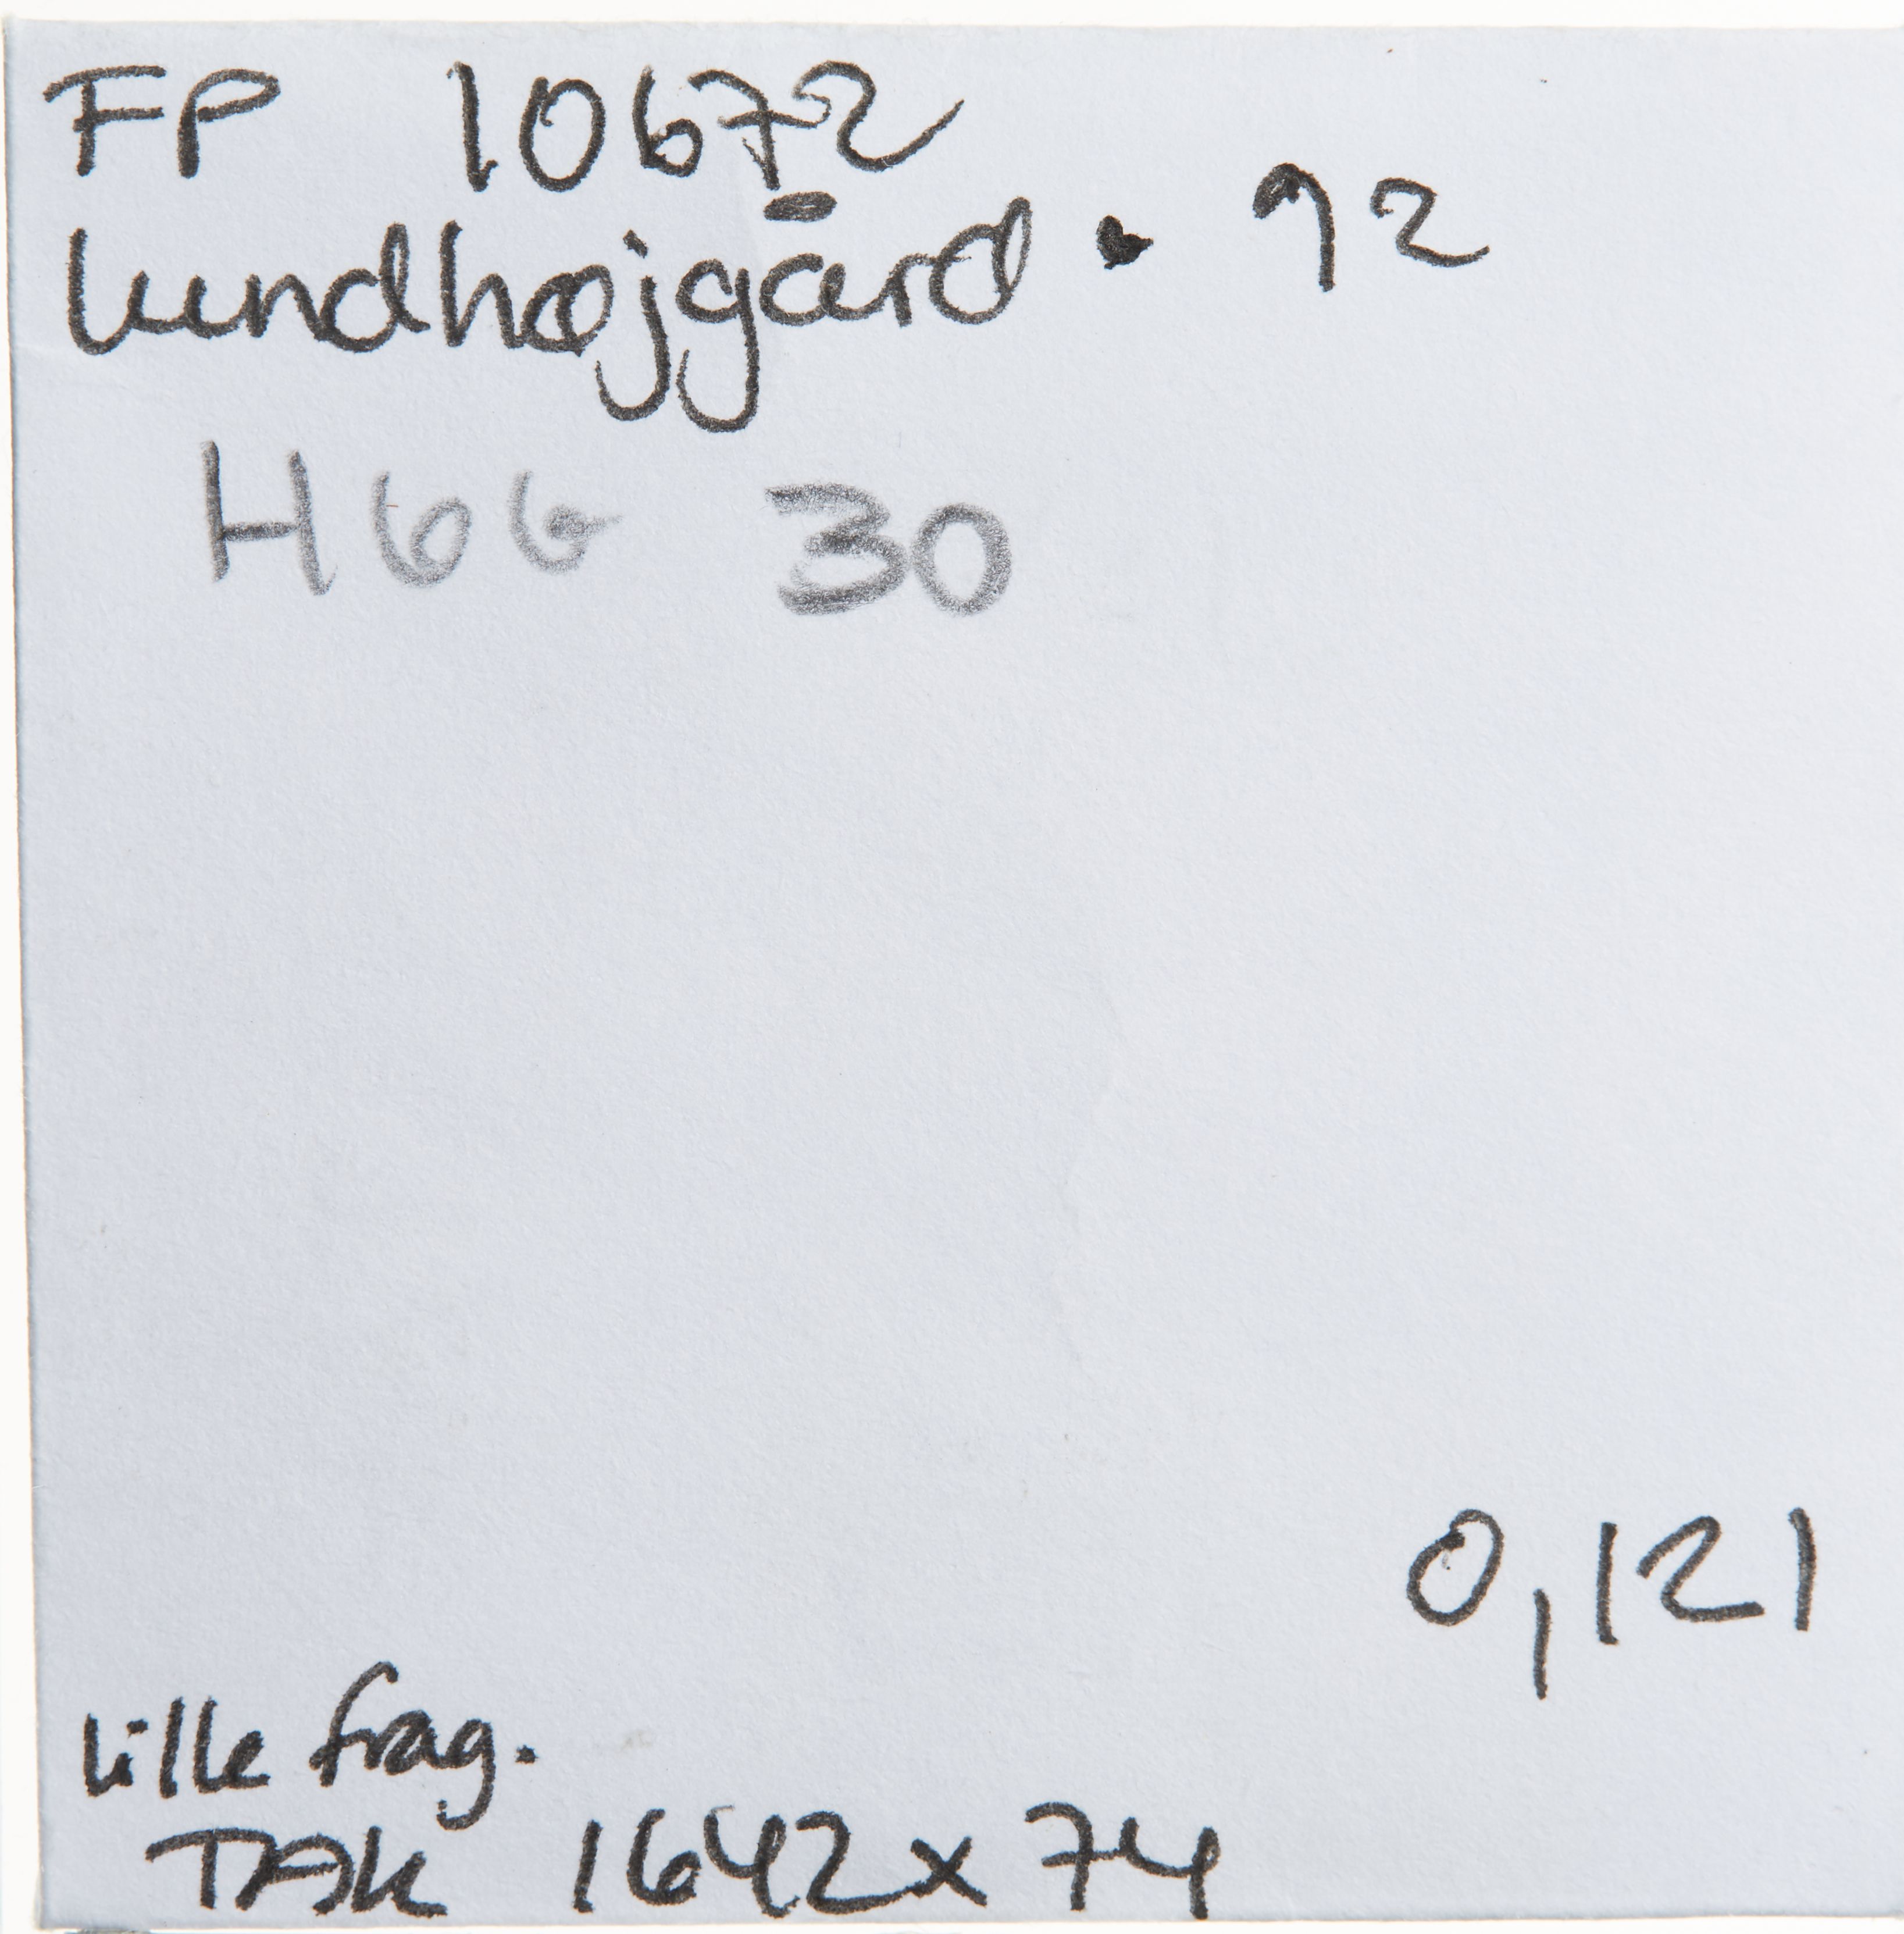 FP 10672
Lundhøjgård • 92
HGG 30
0,121
lille frag.
TAK 1642x74